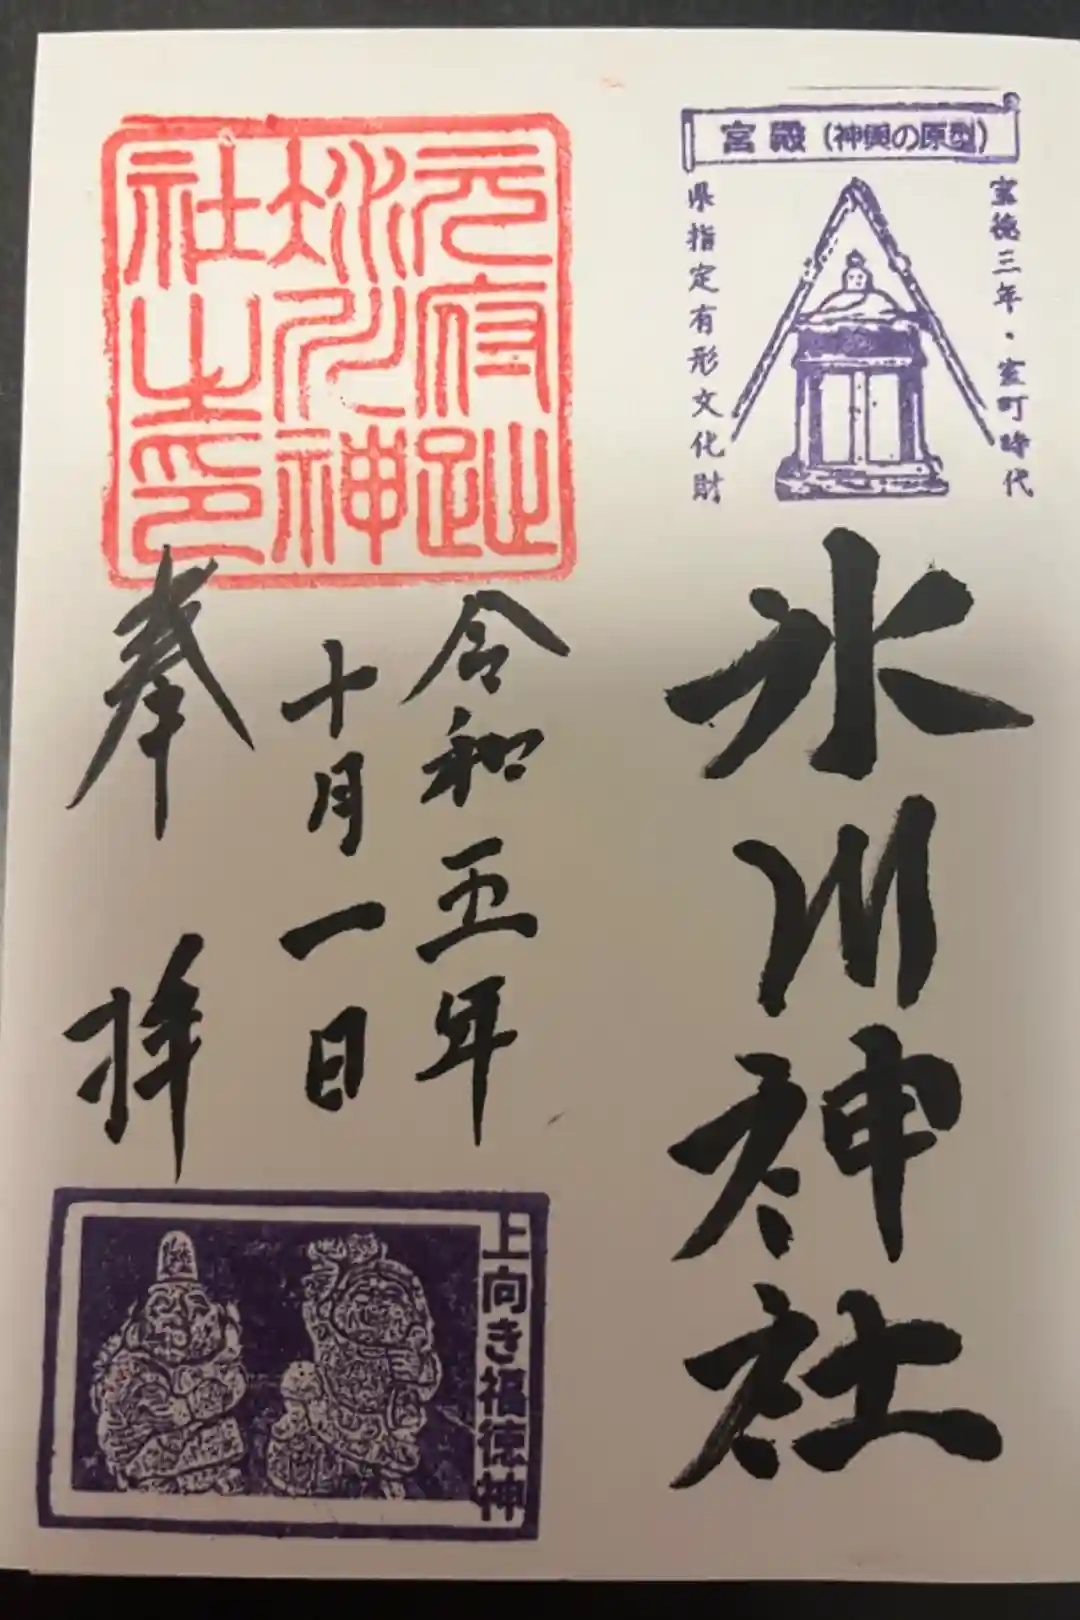 宮殿（神輿の原型）
宝徳三年・室町時代
県指定有形文化財
氷川神社
元府趾
氷川神
社之印
令和五年
十月一日
奉拝
上向き福徳神